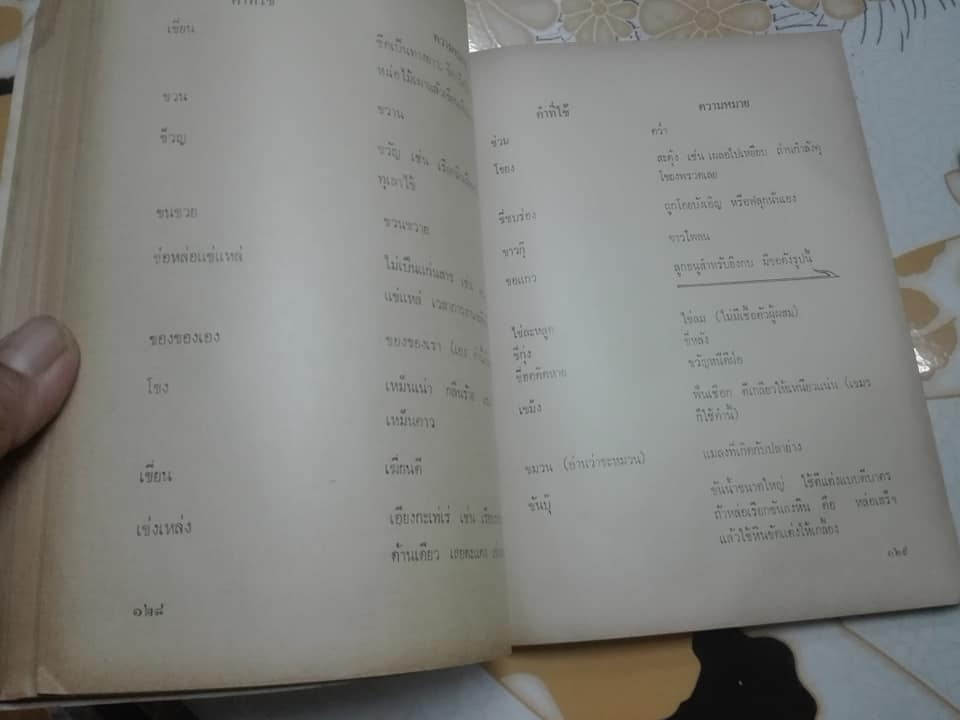 คำที่ใช้
เขียน
ขีดเป็นทางยาว
หน่อไม้เผาแล้ว
ขวน ขวาน
ขวัญ เช่น
ทูเลาไข้
ขนขวย ขวนขวาย
ข่อหล่อแข่แหล่ ไม่เป็นแก่นสาร เช่น
แข่แหล่ เวลาการงาน
ของของเอง ของของเรา (เอง
โขง เหม็นเน่า กลิ่นร้าย
เหม็นคาว
เขี่ยน เฆี่ยนตี
เข่งเหล่ง เอียงกะเท่เร่ เช่น
ด้านเดียว เลยตะแคง
๑๒๘
คำที่ใช้ ความหมาย
ข่วม คว่ำ
โของ สะดุ้ง เช่น เผลอไปเหยียบ ถ่านกำลังคุ
โของพรวดเลย
ขี่ขบร่อง ถูกโดยบังเอิญ หรือฟลุกนั่นเอง
ขาวกู๊ ขาวโพลน
ขอแกว ลูกธนูสำหรับยิงกบ มีขอดังรูปนี้
ไข่ละหลูก ไข่ลม (ไม่มีเชื้อตัวผู้ผสม)
ขี่กุ่ง ขี่หลัง
ขี่อดคิดหาย ขวัญหนีดีฝ่อ
เขมึง ฟั่นเชือก ตีเกลียวให้เหนียวแน่น (เขมร
ก็ใช้คำนี้)
ขมวน (อ่านว่าขะหมวน) แมลงที่เกิดกับปลาย่าง
ขันบุ๊ ขันน้ำขนาดใหญ่ ใช้ตีแต่งแบบตีบาตร
ถ้าหล่อเรียกขันลงหิน คือ หล่อเสร็จ
แล้วใช้หินขัดแต่งให้เกลี้ยง
๑๒๙